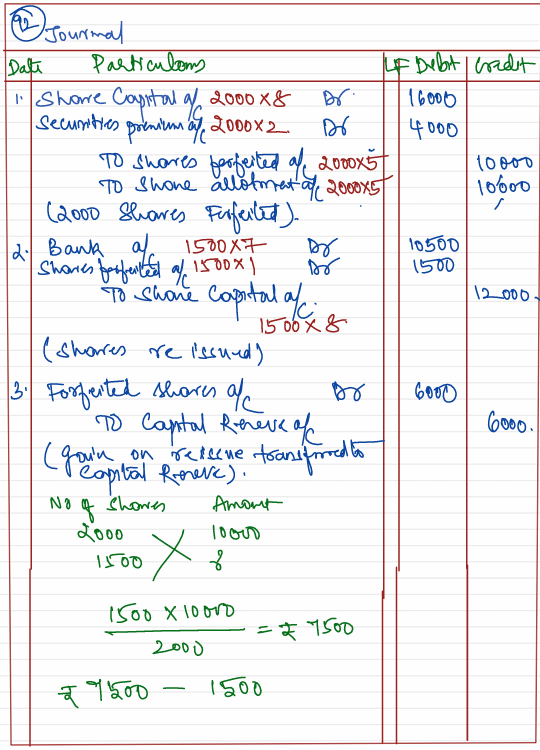 92 Journal
Date Particulars LF Debit Credit
1. Share Capital a/c 2000×8 Dr 16000
Securities premium a/c 2000×2 Dr 4000
TO Shares forfeited a/c 2000×5 10000
TO Share allotment a/c 2000×5 10000
(2000 Shares Forfeited).
2. Bank a/c 1500×7 Dr 10500
Shares forfeited a/c 1500×1 Dr 1500
To Share Capital a/c. 12000.
1500×8
(Shares re issued)
3. Forfeited shares a/c Dr 6000
TO Capital Reserve a/c 6000.
(gain on reissue transferred to
Capital Reserve).
No of Shares Amount
2000 10000
1500 ?
1500 × 10000
= ₹ 7500
2000
₹ 7500 − 1500